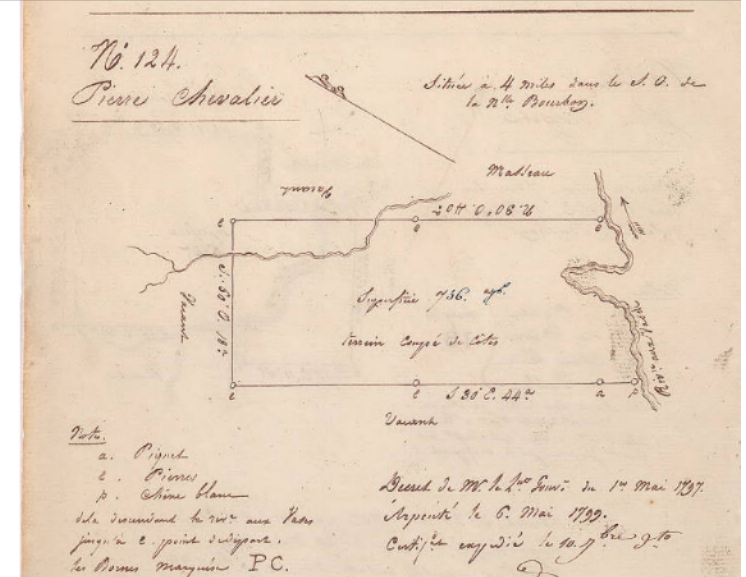 N.º 124.
Pierre Chevalier
Située à 4 miles dans le S. O. de
la N.lle Bourbon.
Vacant
Masseau
N. 30º O. 40.a
S. 60º O. 18.a
Vacant
Superficie 736. 
terrein coupé de côtes
Riv.re aux Vases
S 30º E. 44.a
Vacant
Note.
a. Piquet
c. Pierres
p. Chêne blanc
de la descendant la riv.re aux Vases
jusqu'à c. point de départ.
les Bornes marquées P C.
Decret de M.r le L.nt Gouv.r du 1.er Mai 1797.
Arpenté le 6. Mai 1799.
Certif.at expedié le 10. 9.bre